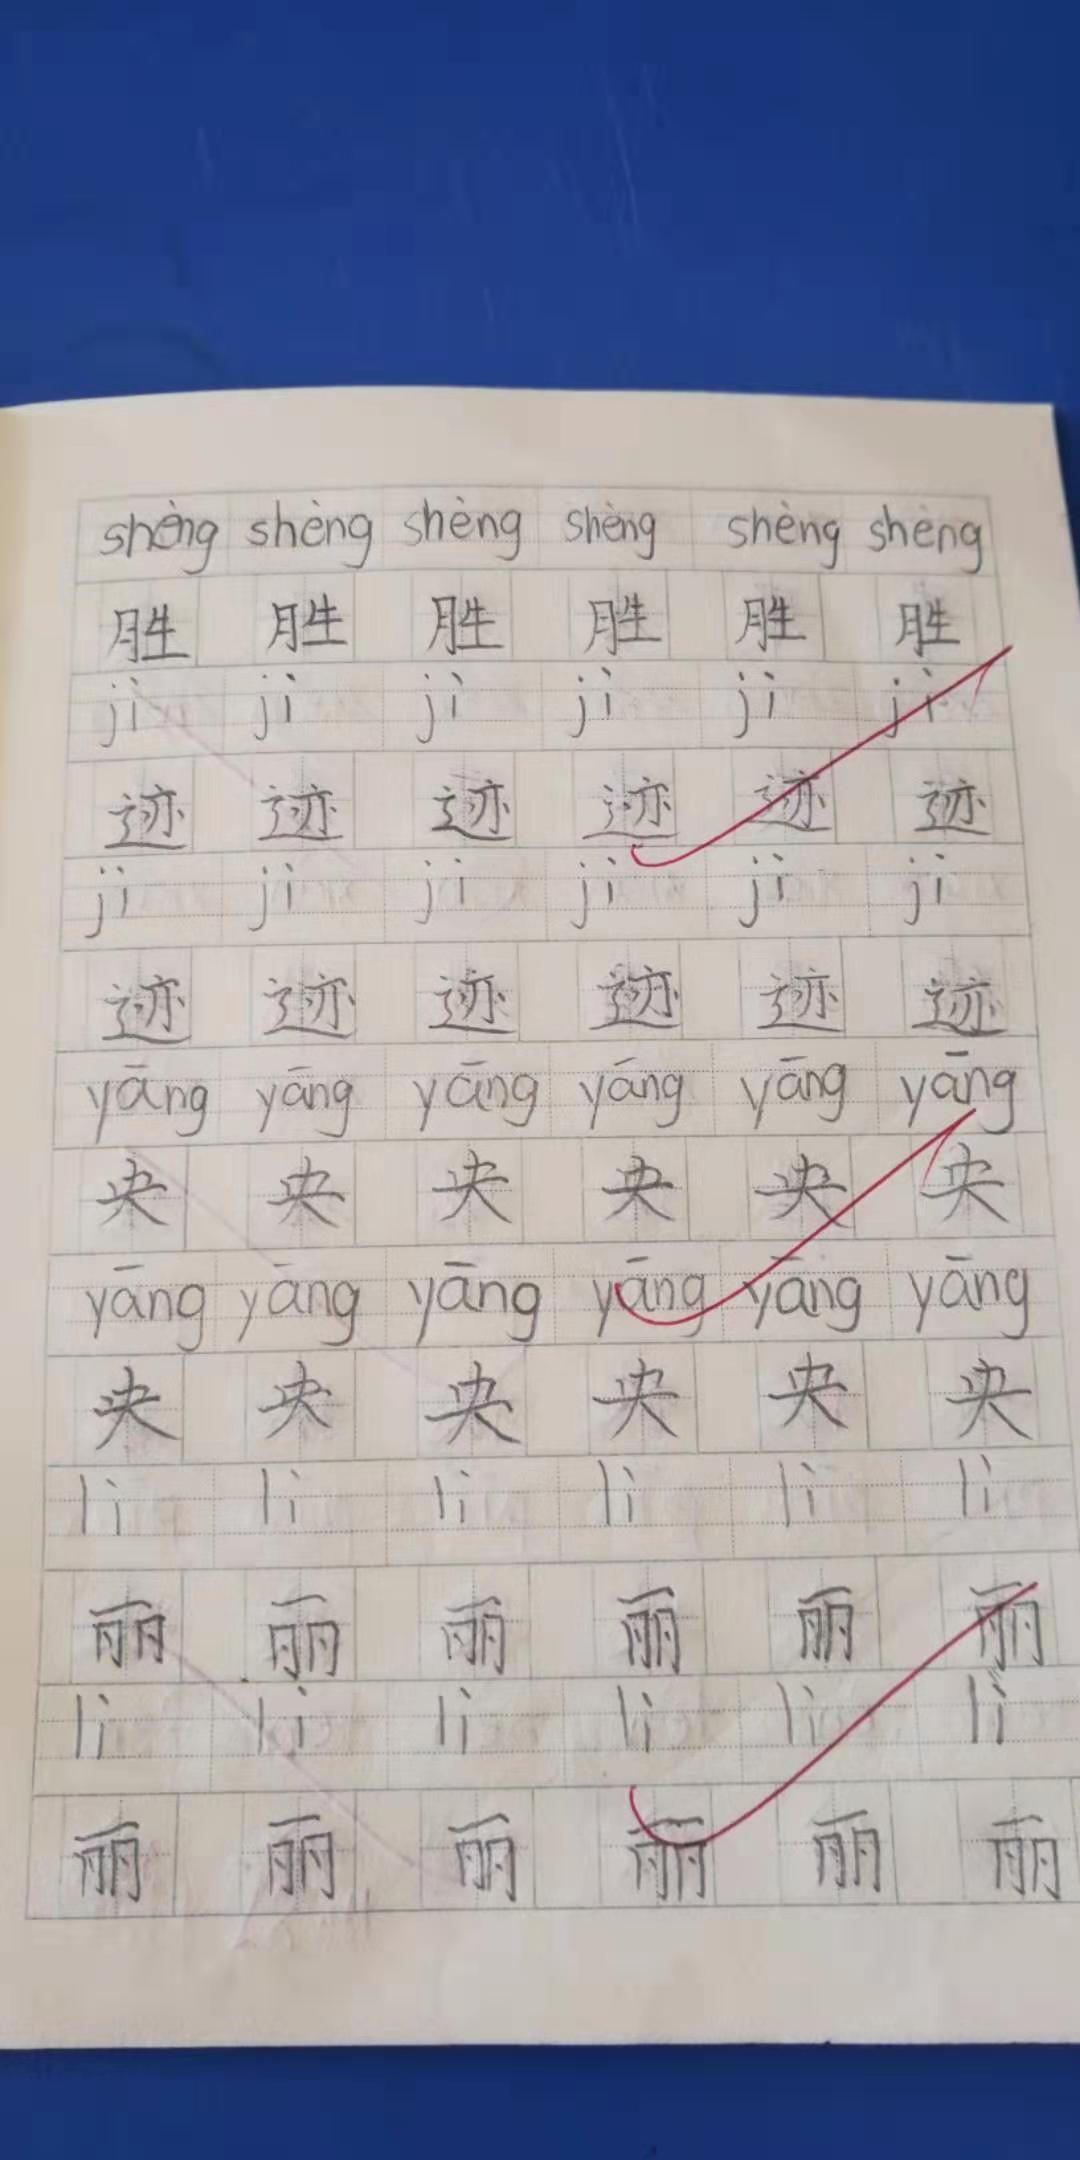 shèng shèng shèng shèng shèng shèng
胜 胜 胜 胜 胜 胜
jì jì jì jì jì jì
迹 迹 迹 迹 迹 迹
jì jì jì jì jì jì
迹 迹 迹 迹 迹 迹
yāng yāng yāng yāng yāng yāng
央 央 央 央 央 央
yāng yāng yāng yāng yāng yāng
央 央 央 央 央 央
lì lì lì lì lì lì
丽 丽 丽 丽 丽 丽
lì lì lì lì lì lì
丽 丽 丽 丽 丽 丽